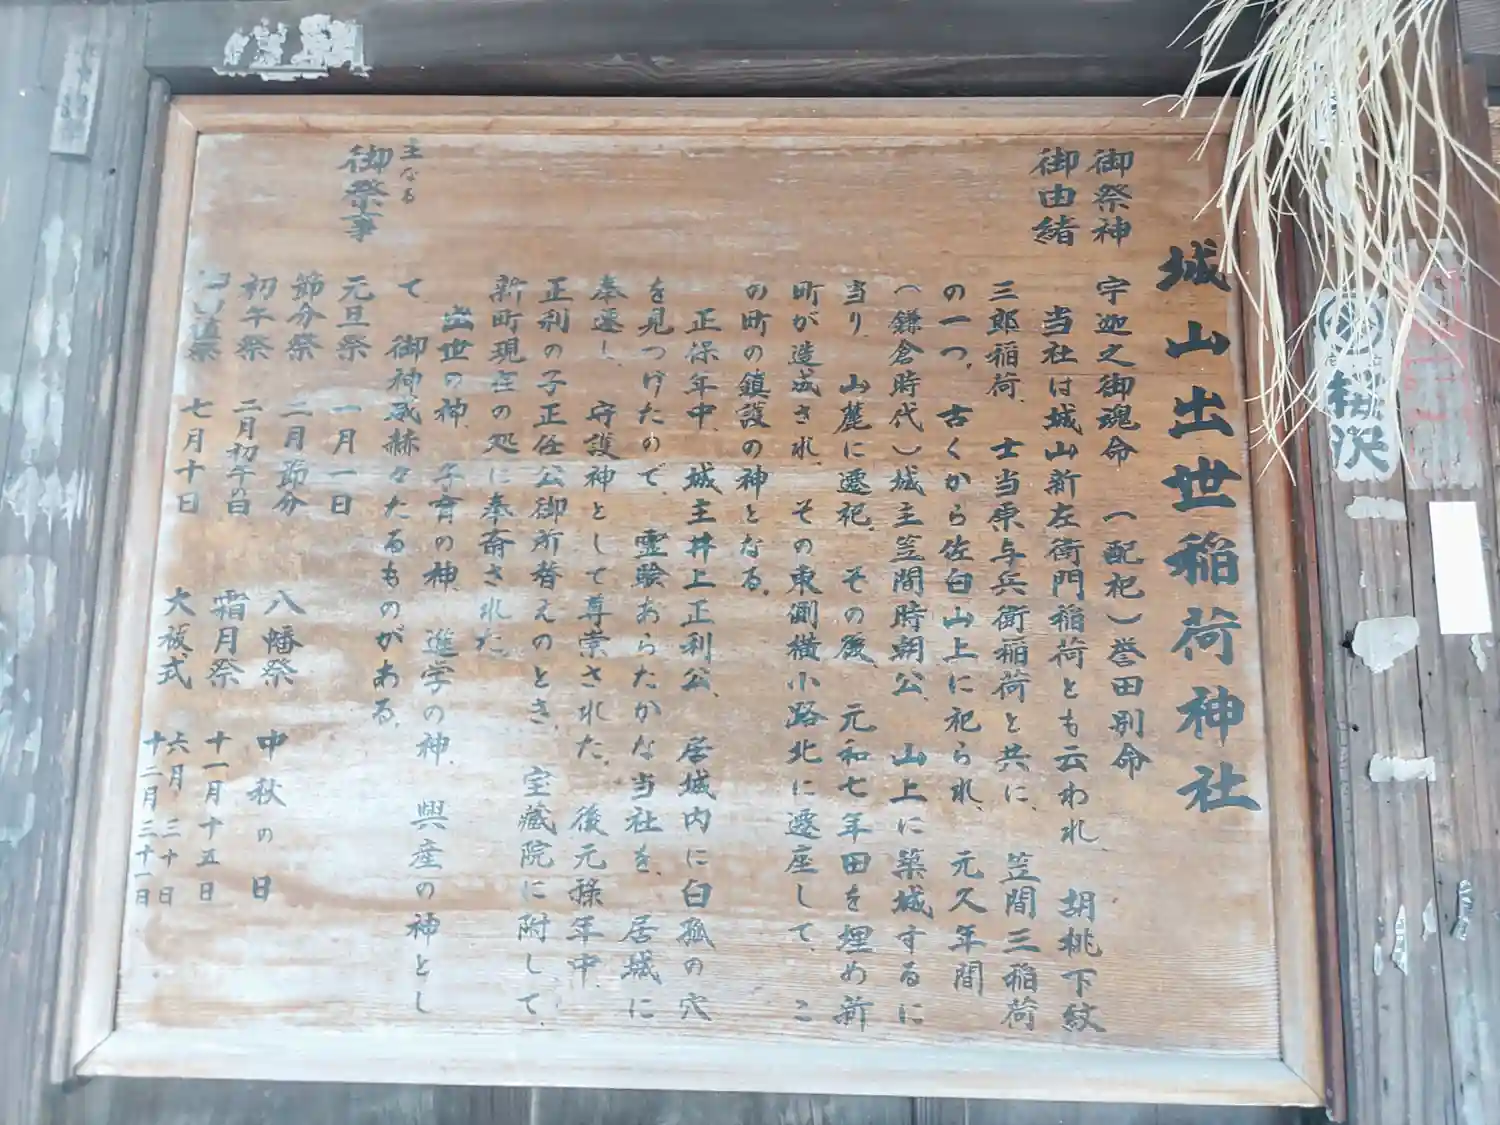 城山出世稲荷神社
御祭神 宇迦之御魂命 (配祀)誉田別命
御由緒 当社は城山新左衛門稲荷とも云われ、胡桃下紋
三郎稲荷、士当原与兵衛稲荷と共に、笠間三稲荷
の一つ。古くから佐白山上に祀られ、元久年間
(鎌倉時代)城主笠間時朝公、山上に築城するに
当り、山麓に遷祀、その後、元和七年田を埋め新
町が造成され、その東側横小路北に遷座して、こ
の町の鎮護の神となる。
正保年中、城主井上正利公、居城内に白狐の穴
を見つけたので、霊験あらたかな当社を、居城に
奉遷し、守護神として尊崇された。後元禄年中、
正利の子正任公御所替えのとき、宝蔵院に附して、
新町現在の処に奉斎された
出世の神、子育の神、進学の神、興産の神とし
て 御神威赫々たるものがある。
主なる
御祭事
元旦祭 一月一日
節分祭 二月節分
初午祭 二月初午の日
七月十日
八幡祭 中秋の日
霜月祭 十一月十五日
大祓式 六月三十日
十二月三十一日
桜沢